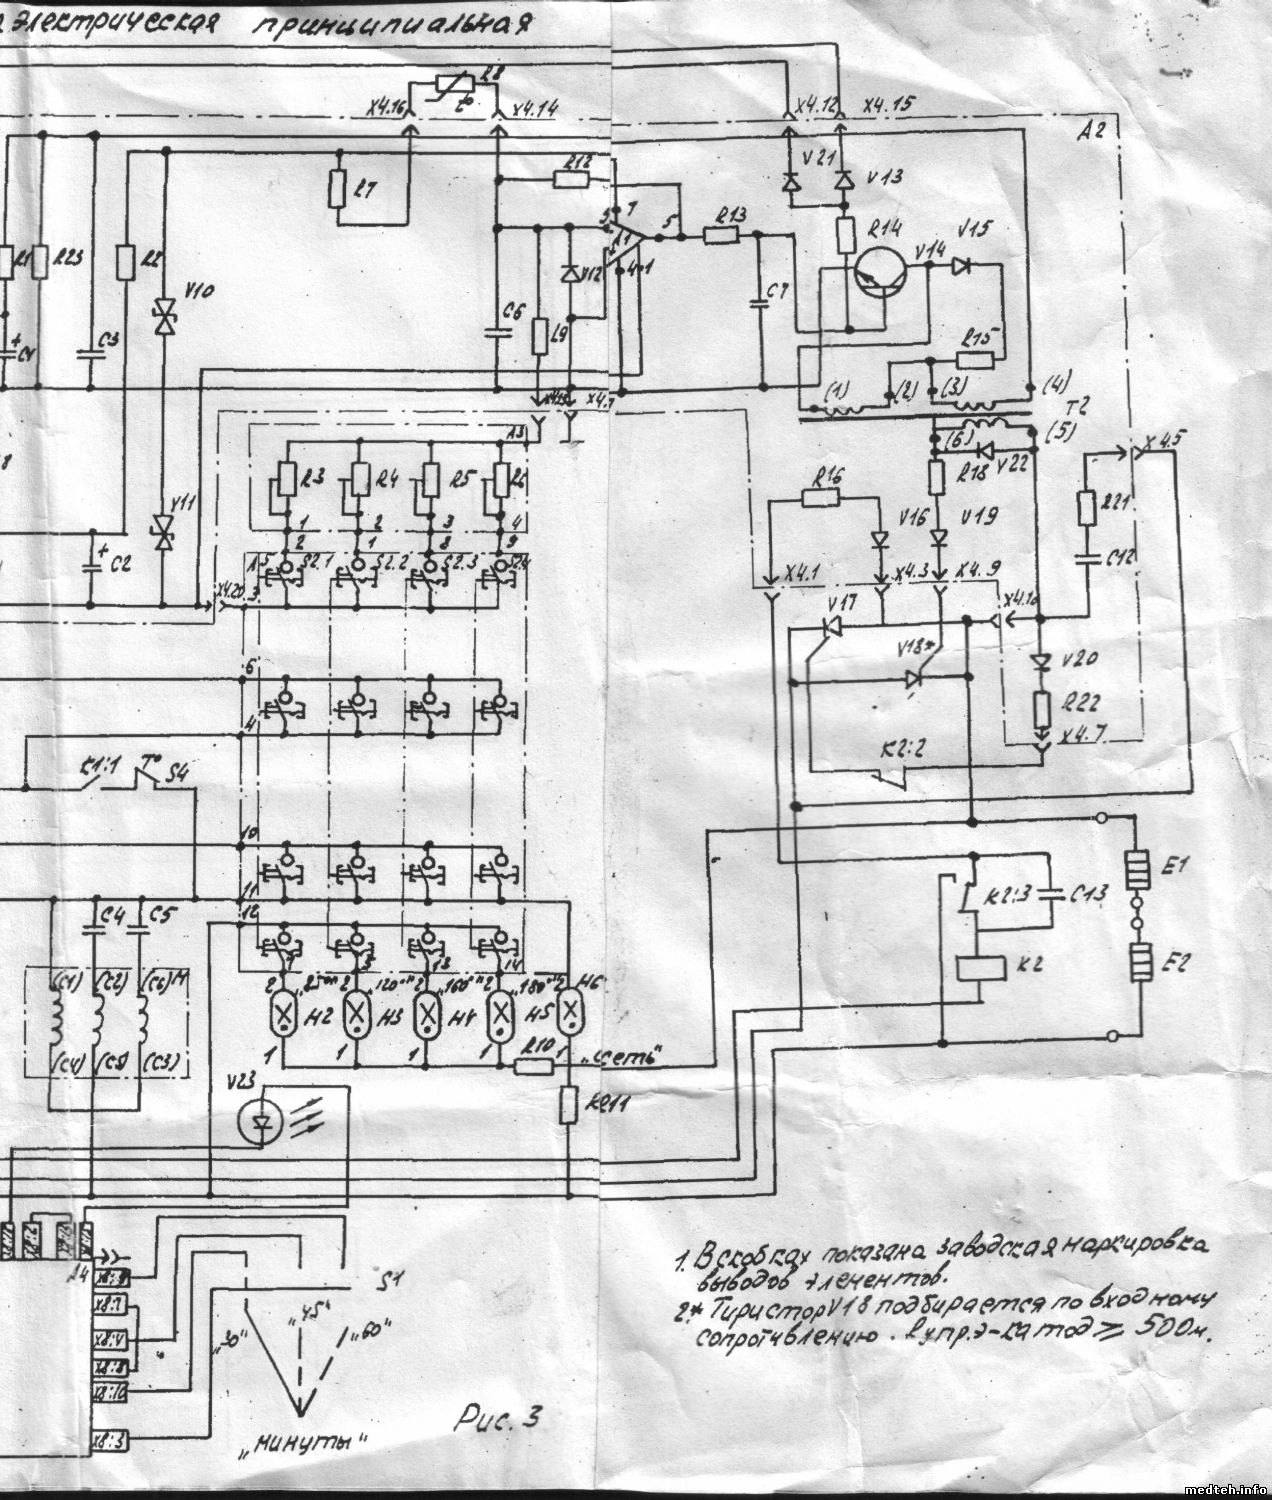 электрическая принципиальная
R8
t°
X4.16
X4.14
X4.12
X4.15
A2
V21
V13
R12
R7
R13
R14
V14
V15
R1
R23
R2
V10
V12
C6
C7
C3
R15
(1)
(2)
(3)
(4)
T2
(5)
(6)
V22
X4.5
A3
R3
R4
R5
R6
R16
R18
V16
V19
R21
C12
V11
C2
1
2
3
4
2
1
8
9
S2.1
S2.2
S2.3
S2.4
X4.20
3
X4.1
X4.3
X4.9
X4.10
V17
V18*
V20
R22
X4.7
6
4
K1:1
T°
S4
K2:2
10
11
12
C4
C5
E1
K2:3
C13
E2
K2
(C1)
(C2)
(C6)
M
(C4)
(C5)
(C3)
"85°"
"120°"
"160°"
"180°"
H2
H3
H4
H5
H6
R10
"сеть"
V23
R11
A4
S1
X8:4
X8:8
X8:10
X8:3
"30"
"45"
"60"
"минуты"
Рис. 3
1. В скобках показана заводская маркировка
выводов элементов.
2.* Тиристор V18 подбирается по входному
сопротивлению. Rупр.э-катод ≥ 50Ом.
medteh.info